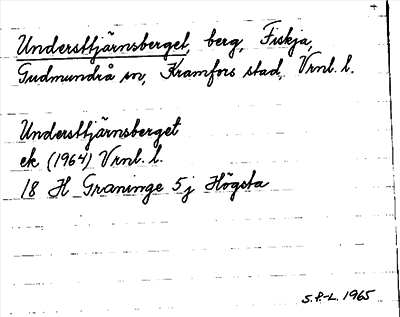 Understtjärnsberget, berg, Fiskja,
Gudmundrå sn, Kramfors stad, Vrnl. l.
Understtjärnsberget
ek (1964) Vrnl. l.
18 H Graninge 5j Högsta
S.P-L. 1965